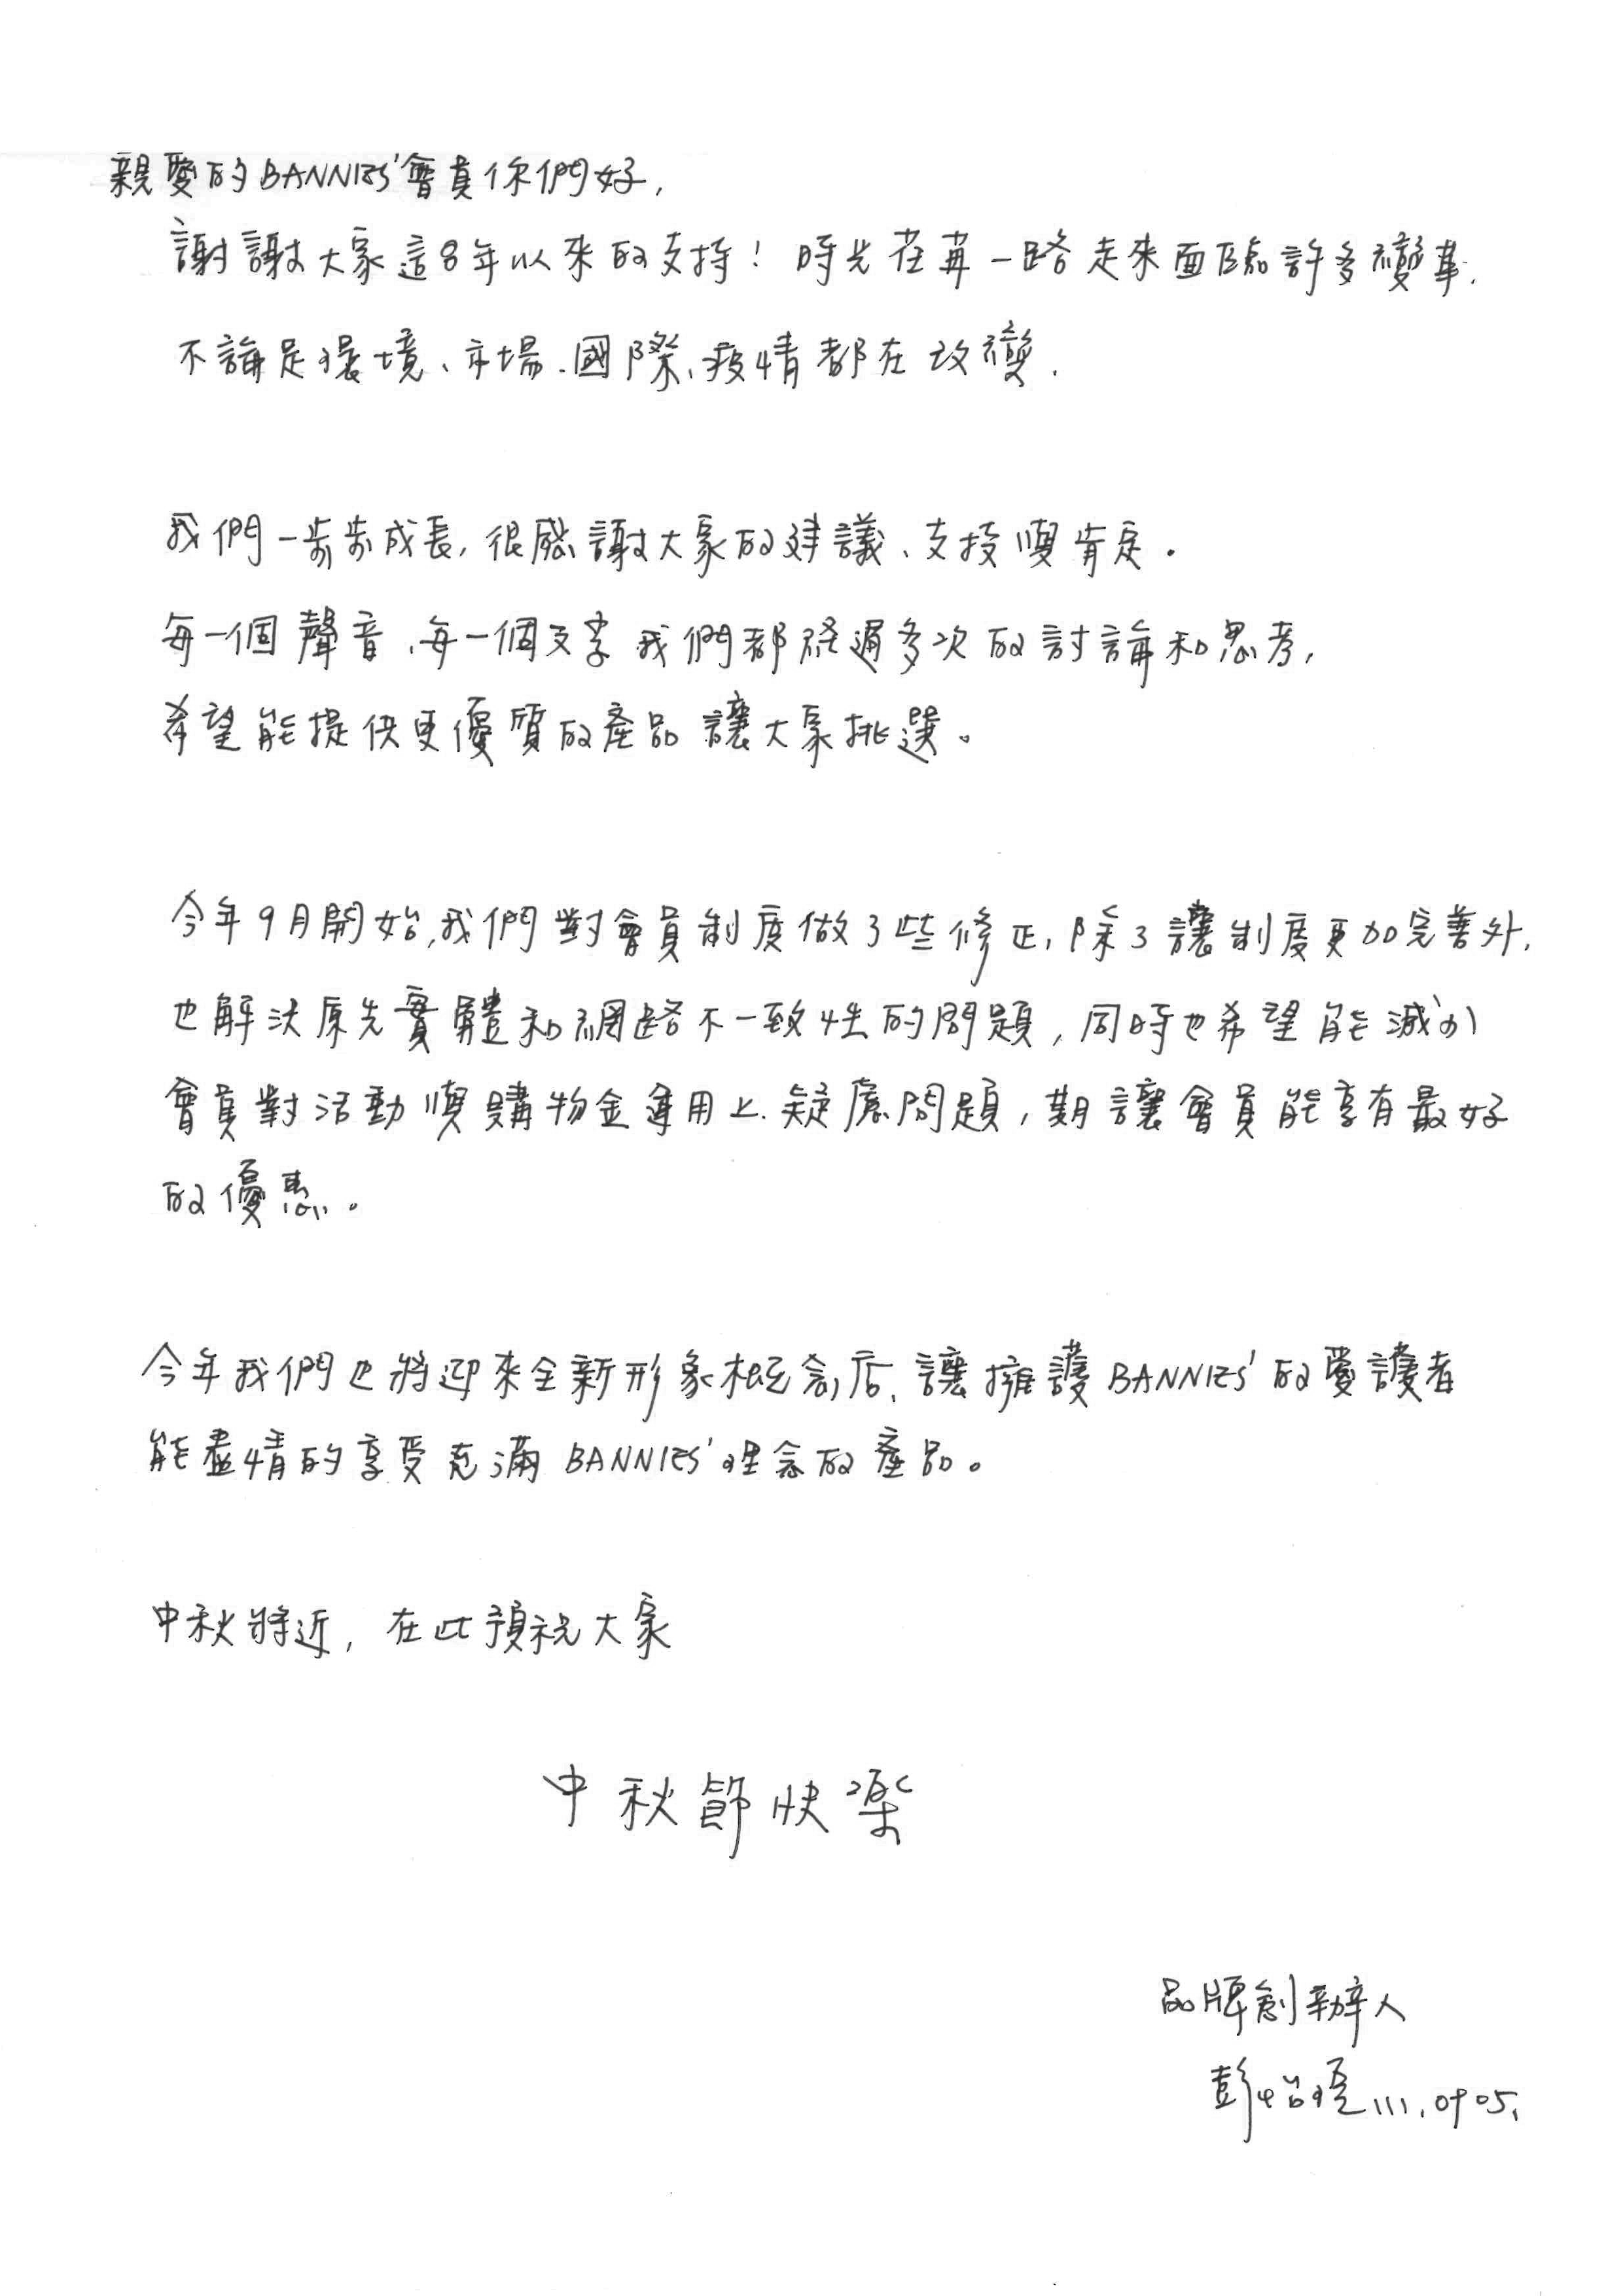 親愛的BANNIES'會員你們好,
謝謝大家這8年以來的支持！時光荏苒一路走來面臨許多變革,
不論是環境、市場、國際、疫情都在改變.
我們一步步成長,很感謝大家的建議、支持與肯定.
每一個聲音、每一個文字我們都經過多次的討論和思考,
希望能提供更優質的產品讓大家挑選。
今年9月開始,我們對會員制度做了些修正,除了讓制度更加完善外,
也解決原先實體和網路不一致性的問題,同時也希望能減少
會員對活動與購物金運用上疑慮問題,期讓會員能享有最好
的優惠。
今年我們也將迎來全新形象概念店,讓擁護BANNIES'的愛護者
能盡情的享受充滿BANNIES'理念的產品。
中秋將近,在此預祝大家
中秋節快樂
品牌創辦人
彭怡 111.0905.